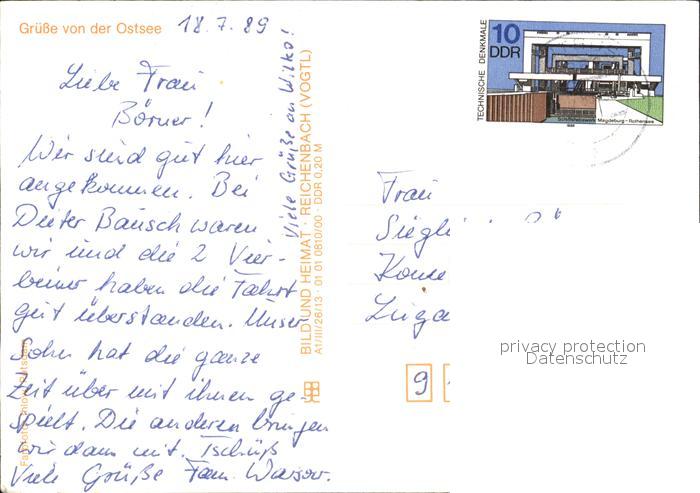 Grüße von der Ostsee 18.7.89
Liebe Frau
Börner!
Wir sind gut hier
angekommen. Bei
Dieter Bausch waren
wir und die 2 Vier-
beiner haben die Fahrt
gut überstanden. Unser
Sohn hat die ganze
Zeit über mit ihnen ge-
spielt. Die anderen bringen
wir dann mit. Tschüß
Viele Grüße Fam. Warsow.
Viele Grüße an Wilko!
BILD UND HEIMAT · REICHENBACH (VOGTL)
A1/III/26/13 · 01 01 0810/00 · DDR 0,20 M
TECHNISCHE DENKMALE
10
DDR
Magdeburg-Rothensee
Frau
9
privacy protection
Datenschutz